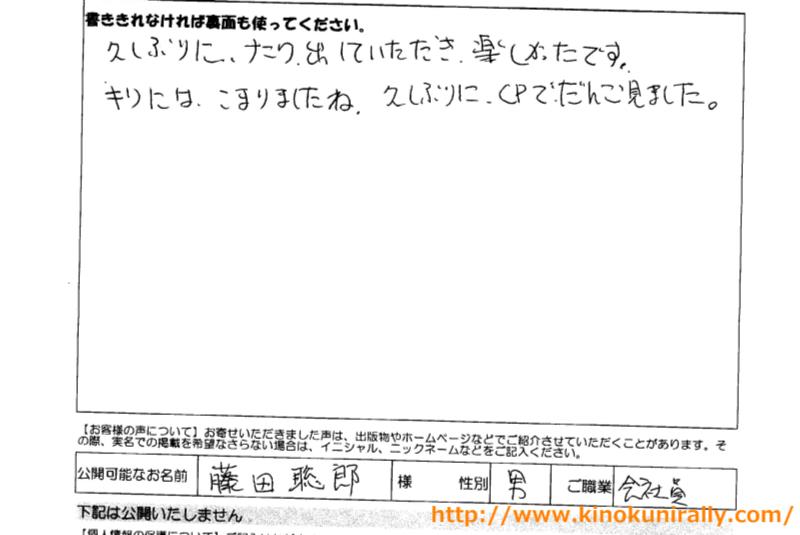 書ききれなければ裏面も使ってください。
久しぶりに、ナビで出していただき、楽しかったです。
キリには、こまりましたね。久しぶりに、CPでだんご見ました。
【お客様の声について】お寄せいただきました声は、出版物やホームページなどでご紹介させていただくことがあります。そ
の際、実名での掲載を希望なさらない場合は、イニシャル、ニックネームなどをご記入ください。
公開可能なお名前 藤田聡郎 様 性別 男 ご職業 会社員
下記は公開いたしません
http://www.kinokunirally.com/